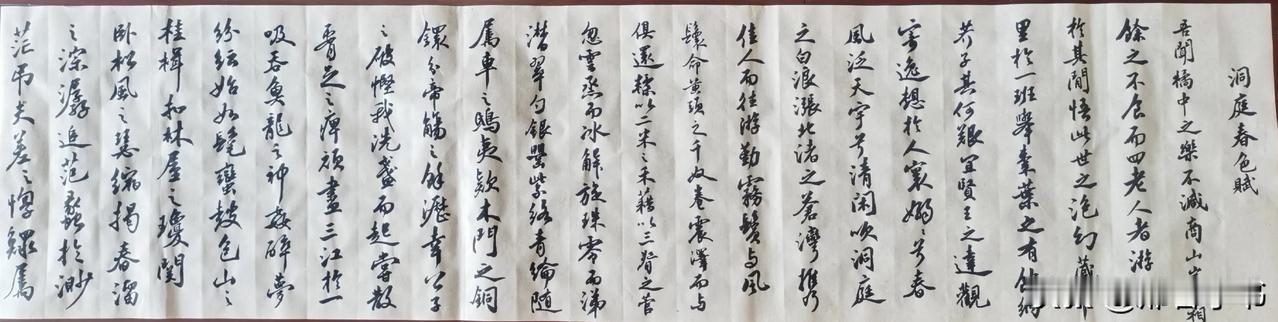 洞庭春色賦
吾聞橘中之樂不減商山豈霜
餘之不食而四老人者游
於其間悟此世之泡幻藏
里於一班舉棗葉之有餘納
芥子其何艱宜賢王之達觀
寄逸想於人寰嫋々兮春
風泛天宇兮清閑吹洞庭
之白浪漲北渚之蒼灣攜
佳人而往游勤霧鬢与風
鬟命黄頭之千奴卷震澤而与
俱還糅以二米之禾藉以三脊之菅
忽雲蒸而冰解旋珠零而涕
潸翠勺銀罌紫絡青綸隨
屬車之鴟夷款木門之銅
鐶分帝觴之餘瀝幸公子
之破慳我洗盞而起嘗散
腰足之痺頑盡三江於一
吸吞魚龍之神姦醉夢
紛紜始如髦蠻鼓包山之
桂楫扣林屋之瓊關
卧松風之瑟縮揭春溜
之淙潺追范蠡於渺
茫弔夫差之惸鰥屬